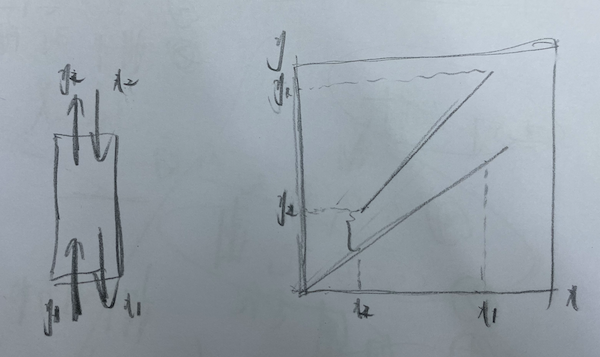 y2 x2
y1 x1
y
y1
y2
x2 x1 x